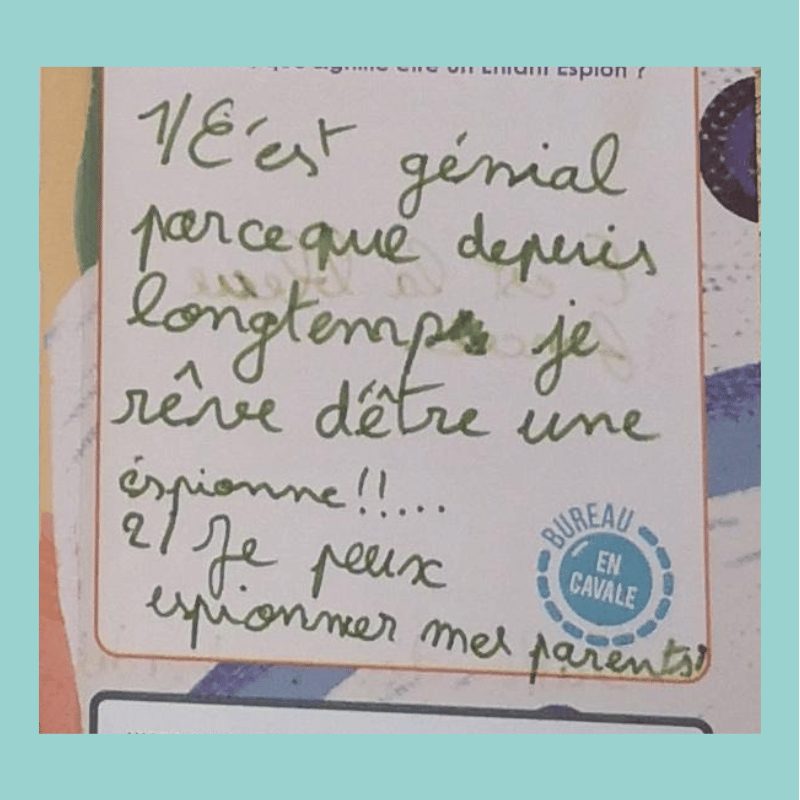 être un Enfant Espion ?
1/ C'est génial
parceque depuis
longtemps je
rêve d'être une
éspionne!!...
2/ Je peux
espionner mes parents!
BUREAU
EN
CAVALE